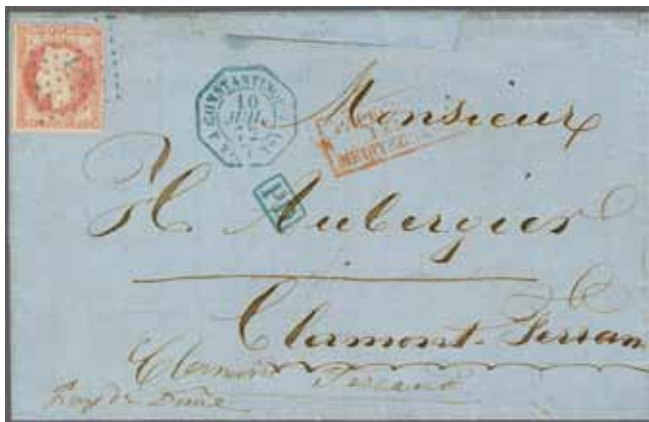 CONSTANTINOPLE
10
JUIL
72
PD
Monsieur
H. Aubergier
Clermont-Ferran
Clermont Ferrand
Puy de Dôme